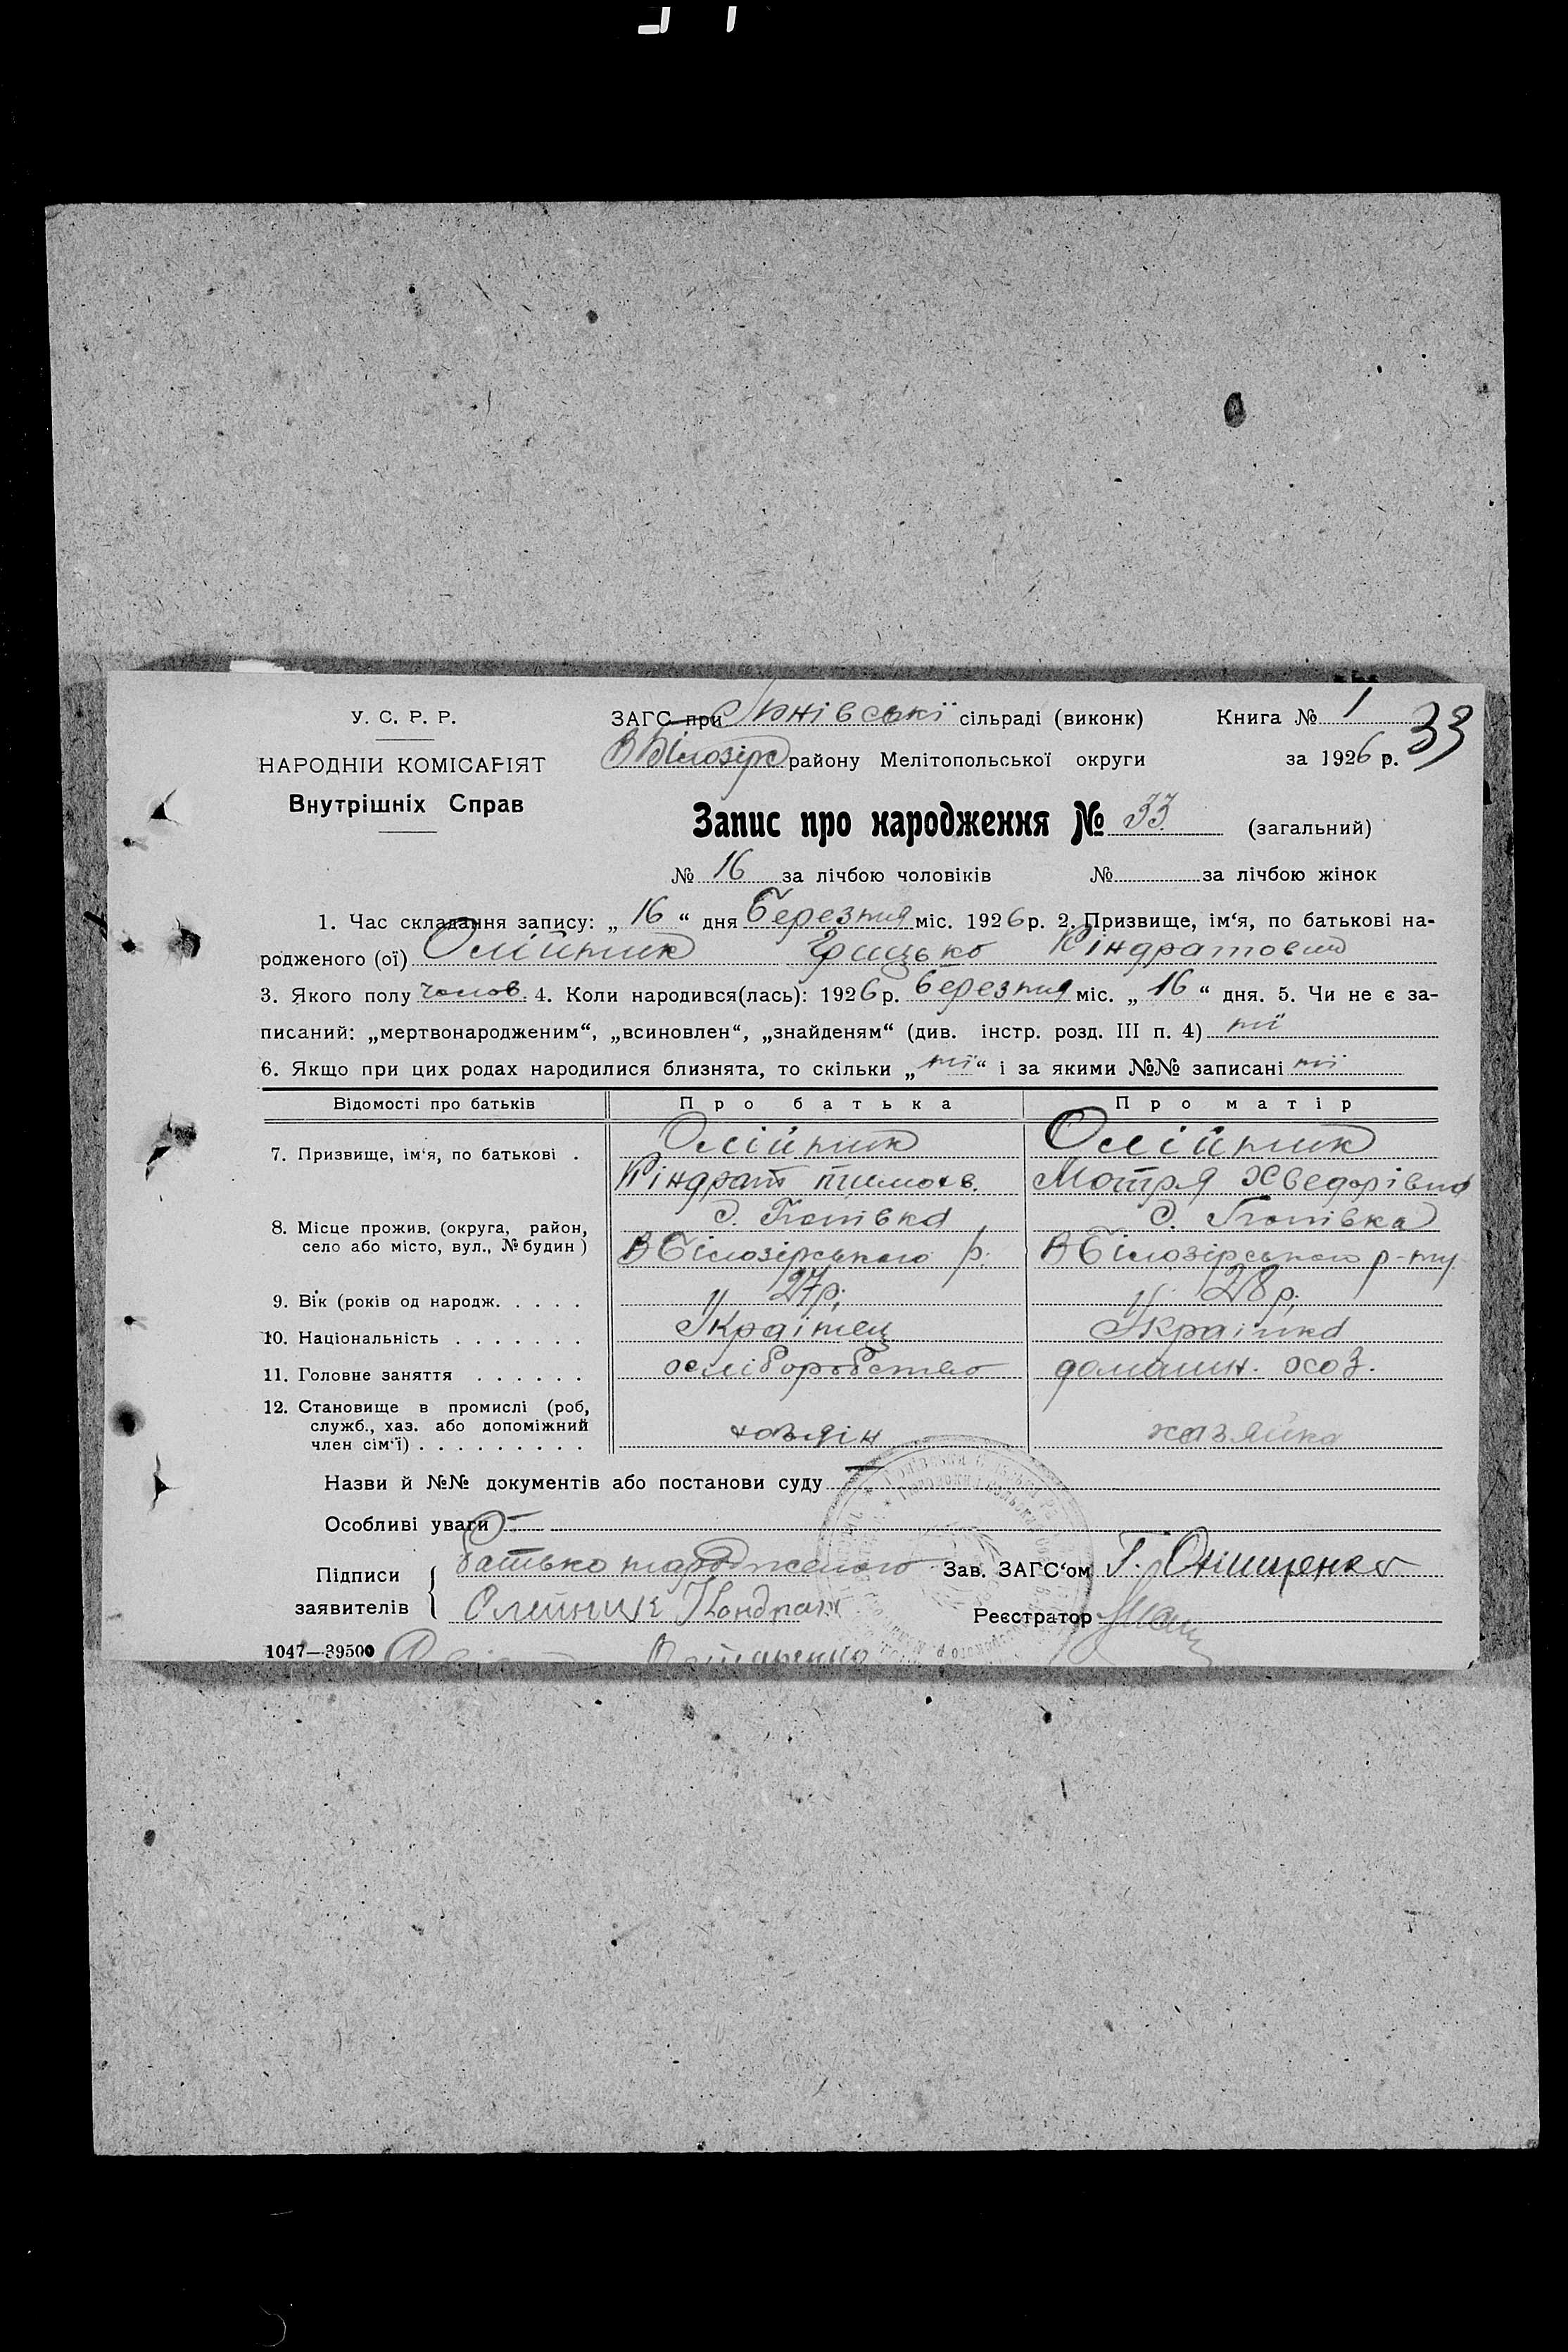 У. С. Р. Р.
НАРОДНІЙ КОМІСАРІЯТ
Внутрішніх Справ
ЗАГС при сільраді (виконк) Книга № 1
33
В Білозірс району Мелітопольської округи за 1926 р.
Запис про народження № 33 (загальний)
№ 16 за лічбою чоловіків № за лічбою жінок
1. Час складання запису: „ 16 “ дня березня міс. 1926 р. 2. Призвище, ім‘я, по батькові на-
родженого (ої) Олійник Грицько Кіндратович
3. Якого полу чолов. 4. Коли народився(лась): 1926 р. березня міс. „ 16 “ дня. 5. Чи не є за-
писаний: „мертвонародженим“, „всиновлен“, „знайденям“ (див. інстр. розд. III п. 4) ні
6. Якщо при цих родах народилися близнята, то скільки „ ні “ і за якими №№ записані ні
Відомості про батьків Про батька Про матір
7. Призвище, ім‘я, по батькові . Олійник Олійник
Кіндрат Мотря Хведорівна
8. Місце прожив. (округа, район, с. Попівка с. Попівка
село або місто, вул., № будин ) В Білозірського р. В Білозірського р-ну
9. Вік (років од народж. . . . . 27 р. 28 р.
10. Національність . . . . . . . Українец Українка
11. Головне заняття . . . . . . хліборобство домашн. хоз.
12. Становище в промислі (роб,
служб., хаз. або допоміжний
член сім‘ї) . . . . . . . . . хозяін хазяйка
Назви й №№ документів або постанови суду —
Особливі уваги —
Підписи батько народженого Зав. ЗАГС‘ом Г. Онищенко
заявителів Олейник Кондрат Реєстратор
1047—39500